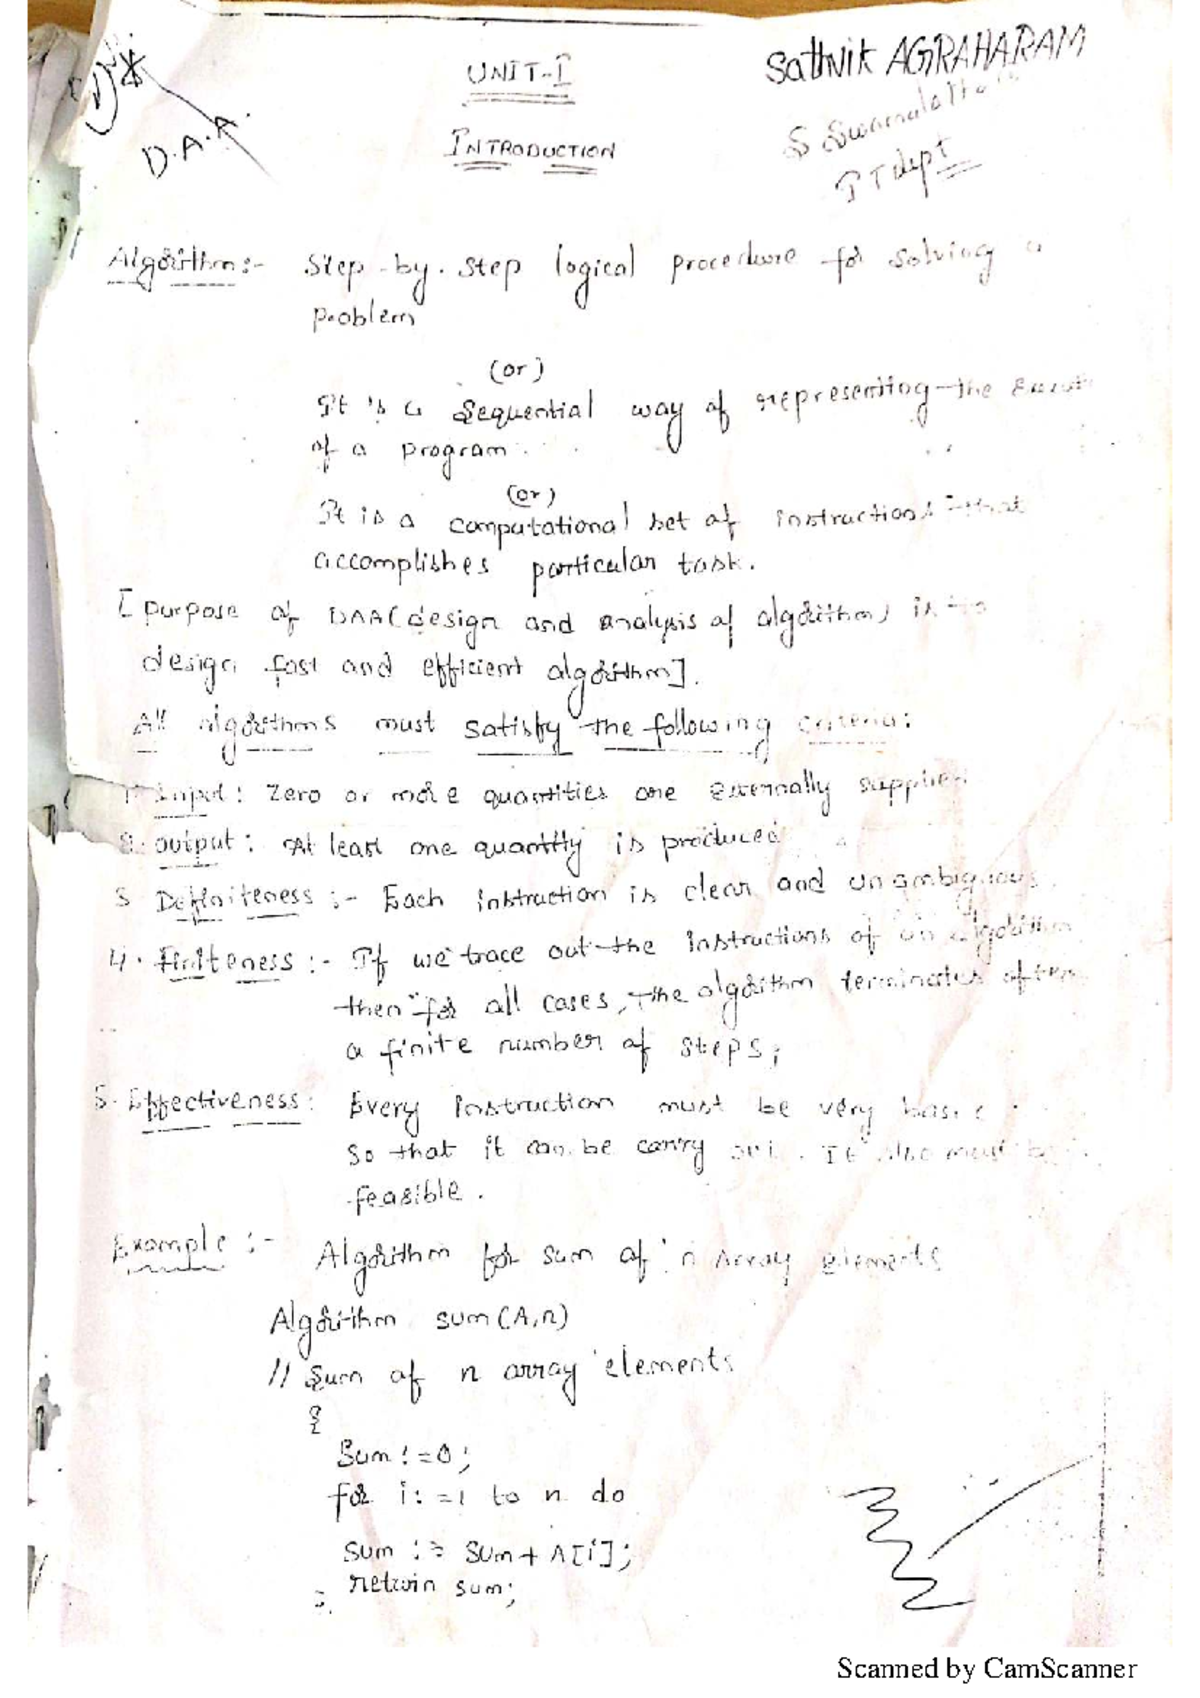 D.A.A.
UNIT-I
Sathvik AGRAHARAM
INTRODUCTION
IT dept
Algorithm:- Step-by-step logical procedure for solving a
problem
(or)
It is a sequential way of representing the
of a program.
(or)
It is a computational set of instructions that
accomplishes particular task.
[purpose of DAA(design and analysis of algorithm) is to
design fast and efficient algorithm].
All algorithms must satisfy the following criteria:
1. Input: Zero or more quantities are externally supplied
2. output: At least one quantity is produced
3 Definiteness :- Each instruction is clear and unambiguous.
4. Finiteness :- If we trace out the instructions of an algorithm
then for all cases, the algorithm terminates after
a finite number of steps;
5. Effectiveness: Every instruction must be very basic
so that it can be carry out. It also must be
feasible.
Example :- Algorithm for sum of n array elements
Algorithm sum(A,n)
// Sum of n array elements
{
Sum :=0;
for i:=1 to n do
sum := sum + A[i];
return sum;
}
Scanned by CamScanner